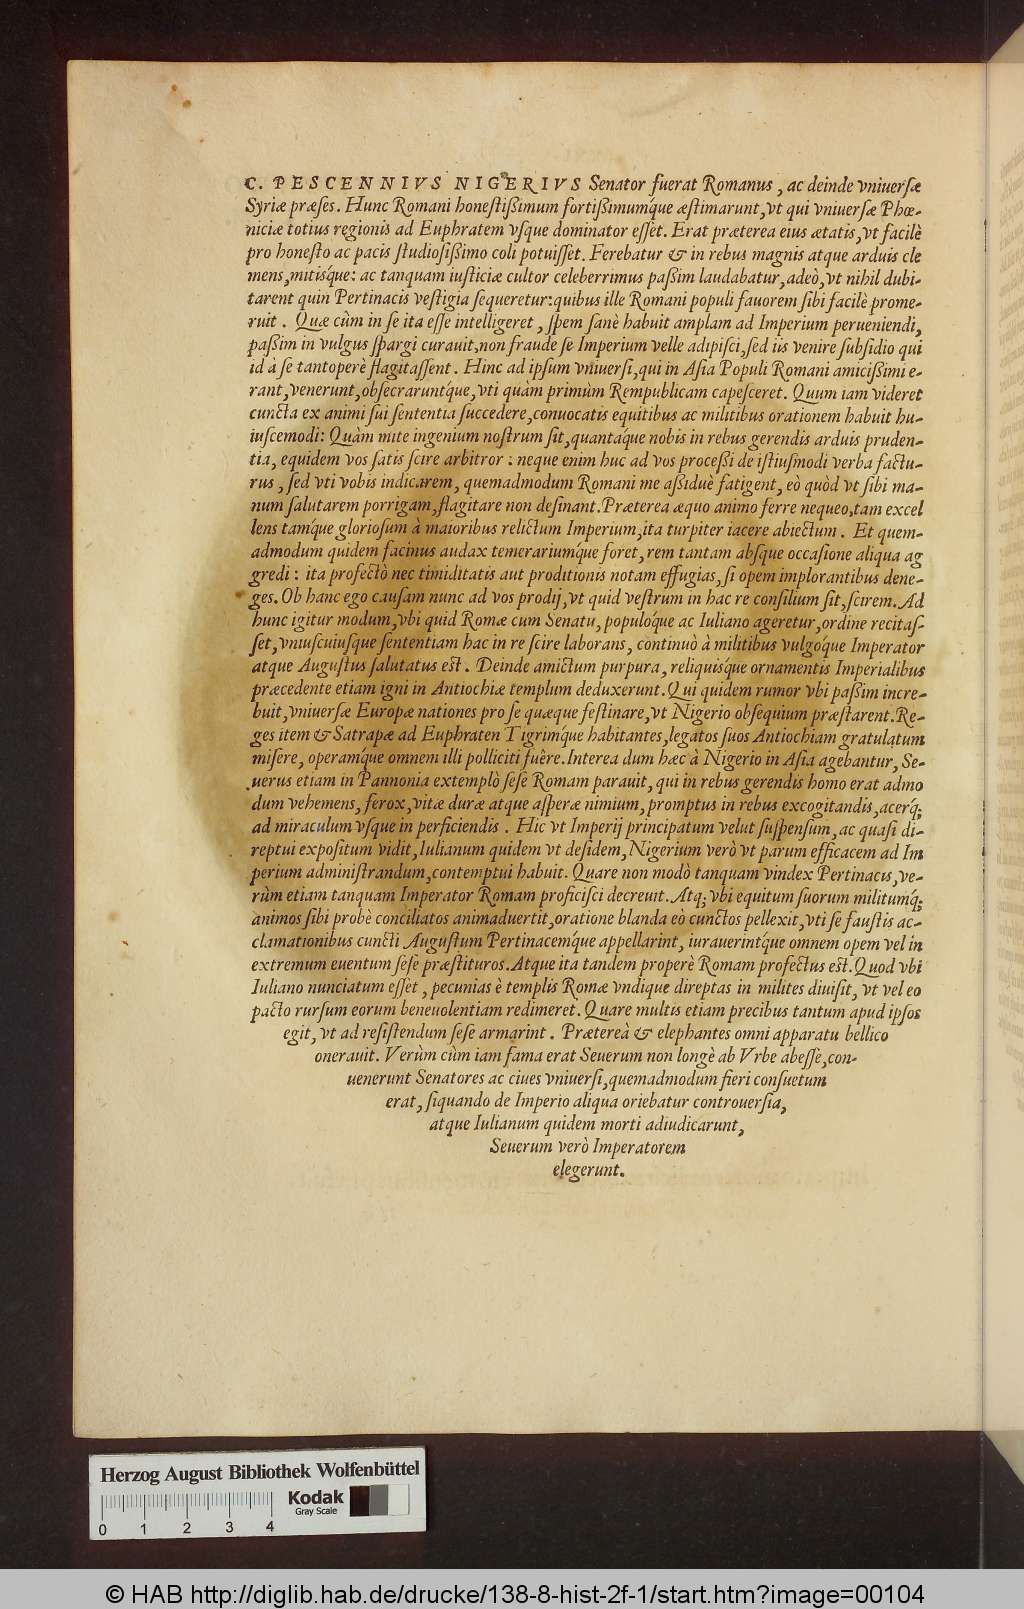 C. PESCENNIVS NIGERIVS Senator fuerat Romanus, ac deinde vniuerſæ
Syriæ præſes. Hunc Romani honeſtißimum fortißimumq́ue æſtimarunt, vt qui vniuerſæ Phœ-
niciæ totius regionis ad Euphratem vſque dominator eſſet. Erat præterea eius ætatis, vt facilè
pro honeſto ac pacis ſtudioſißimo coli potuiſſet. Ferebatur & in rebus magnis atque arduis cle
mens, mitisq́ue: ac tanquam iuſticiæ cultor celeberrimus paßim laudabatur, adeò, vt nihil dubi-
tarent quin Pertinacis veſtigia ſequeretur: quibus ille Romani populi fauorem ſibi facilè prome-
ruit. Quæ cùm in ſe ita eſſe intelligeret, ſpem ſanè habuit amplam ad Imperium perueniendi,
paßim in vulgus ſpargi curauit, non fraude ſe Imperium velle adipiſci, ſed iis venire ſubſidio qui
id à ſe tantoperè flagitaſſent. Hinc ad ipſum vniuerſi, qui in Aſia Populi Romani amicißimi e-
rant, venerunt, obſecraruntq́ue, vti quàm primùm Rempublicam capeſceret. Quum iam videret
cuncta ex animi ſui ſententia ſuccedere, conuocatis equitibus ac militibus orationem habuit hu-
iuſcemodi: Quàm mite ingenium noſtrum ſit, quantaq́ue nobis in rebus gerendis arduis pruden-
tia, equidem vos ſatis ſcire arbitror: neque enim huc ad vos proceßi de iſtiuſmodi verba factu-
rus, ſed vti vobis indicarem, quemadmodum Romani me aßiduè fatigent, eò quòd vt ſibi ma-
num ſalutarem porrigam, flagitare non deſinant. Præterea æquo animo ferre nequeo, tam excel
lens tamq́ue glorioſum à maioribus relictum Imperium, ita turpiter iacere abiectum. Et quem-
admodum quidem facinus audax temerariumq́ue foret, rem tantam abſque occaſione aliqua ag
gredi: ita profectò nec timiditatis aut proditionis notam effugias, ſi opem implorantibus dene-
ges. Ob hanc ego cauſam nunc ad vos prodij, vt quid veſtrum in hac re conſilium ſit, ſcirem. Ad
hunc igitur modum, vbi quid Romæ cum Senatu, populoq́ue ac Iuliano ageretur, ordine recitaſ-
ſet, vniuſcuiuſque ſententiam hac in re ſcire laborans, continuò à militibus vulgoq́ue Imperator
atque Auguſtus ſalutatus eſt. Deinde amictum purpura, reliquisq́ue ornamentis Imperialibus
præcedente etiam igni in Antiochiæ templum deduxerunt. Qui quidem rumor vbi paßim incre-
buit, vniuerſæ Europæ nationes pro ſe quæque feſtinare, vt Nigerio obſequium præſtarent. Re-
ges item & Satrapæ ad Euphraten Tigrimq́ue habitantes, legatos ſuos Antiochiam gratulatum
miſere, operamq́ue omnem illi polliciti fuêre. Interea dum hæc à Nigerio in Aſia agebantur, Se-
uerus etiam in Pannonia extemplò ſeſe Romam parauit, qui in rebus gerendis homo erat admo
dum vehemens, ferox, vitæ duræ atque aſperæ nimium, promptus in rebus excogitandis, acerq́;
ad miraculum vſque in perficiendis. Hic vt Imperij principatum velut ſuſpenſum, ac quaſi di-
reptui expoſitum vidit, Iulianum quidem vt deſidem, Nigerium verò vt parum efficacem ad Im
perium adminiſtrandum, contemptui habuit. Quare non modò tanquam vindex Pertinacis, ve-
rùm etiam tanquam Imperator Romam proficiſci decreuit. Atq; vbi equitum ſuorum militumq́;
animos ſibi probè conciliatos animaduertit, oratione blanda eò cunctos pellexit, vti ſe fauſtis ac-
clamationibus cuncti Auguſtum Pertinacemq́ue appellarint, iurauerintq́ue omnem opem vel in
extremum euentum ſeſe præſtituros. Atque ita tandem properè Romam profectus eſt. Quod vbi
Iuliano nunciatum eſſet, pecunias è templis Romæ vndique direptas in milites diuiſit, vt vel eo
pacto rurſum eorum beneuolentiam redimeret. Quare multis etiam precibus tantum apud ipſos
egit, vt ad reſiſtendum ſeſe armarint. Prætereà & elephantes omni apparatu bellico
onerauit. Verùm cùm iam fama erat Seuerum non longè ab Vrbe abeſſe, con-
uenerunt Senatores ac ciues vniuerſi, quemadmodum fieri conſuetum
erat, ſiquando de Imperio aliqua oriebatur controuerſia,
atque Iulianum quidem morti adiudicarunt,
Seuerum verò Imperatorem
elegerunt.
Herzog August Bibliothek Wolfenbüttel
Kodak
Gray Scale
0 1 2 3 4
© HAB http://diglib.hab.de/drucke/138-8-hist-2f-1/start.htm?image=00104